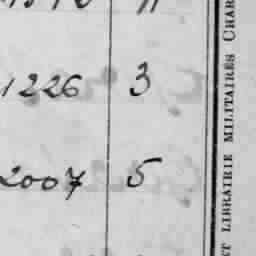 1226 3
2007 5
ET LIBRAIRIE MILITAIRES CHAR